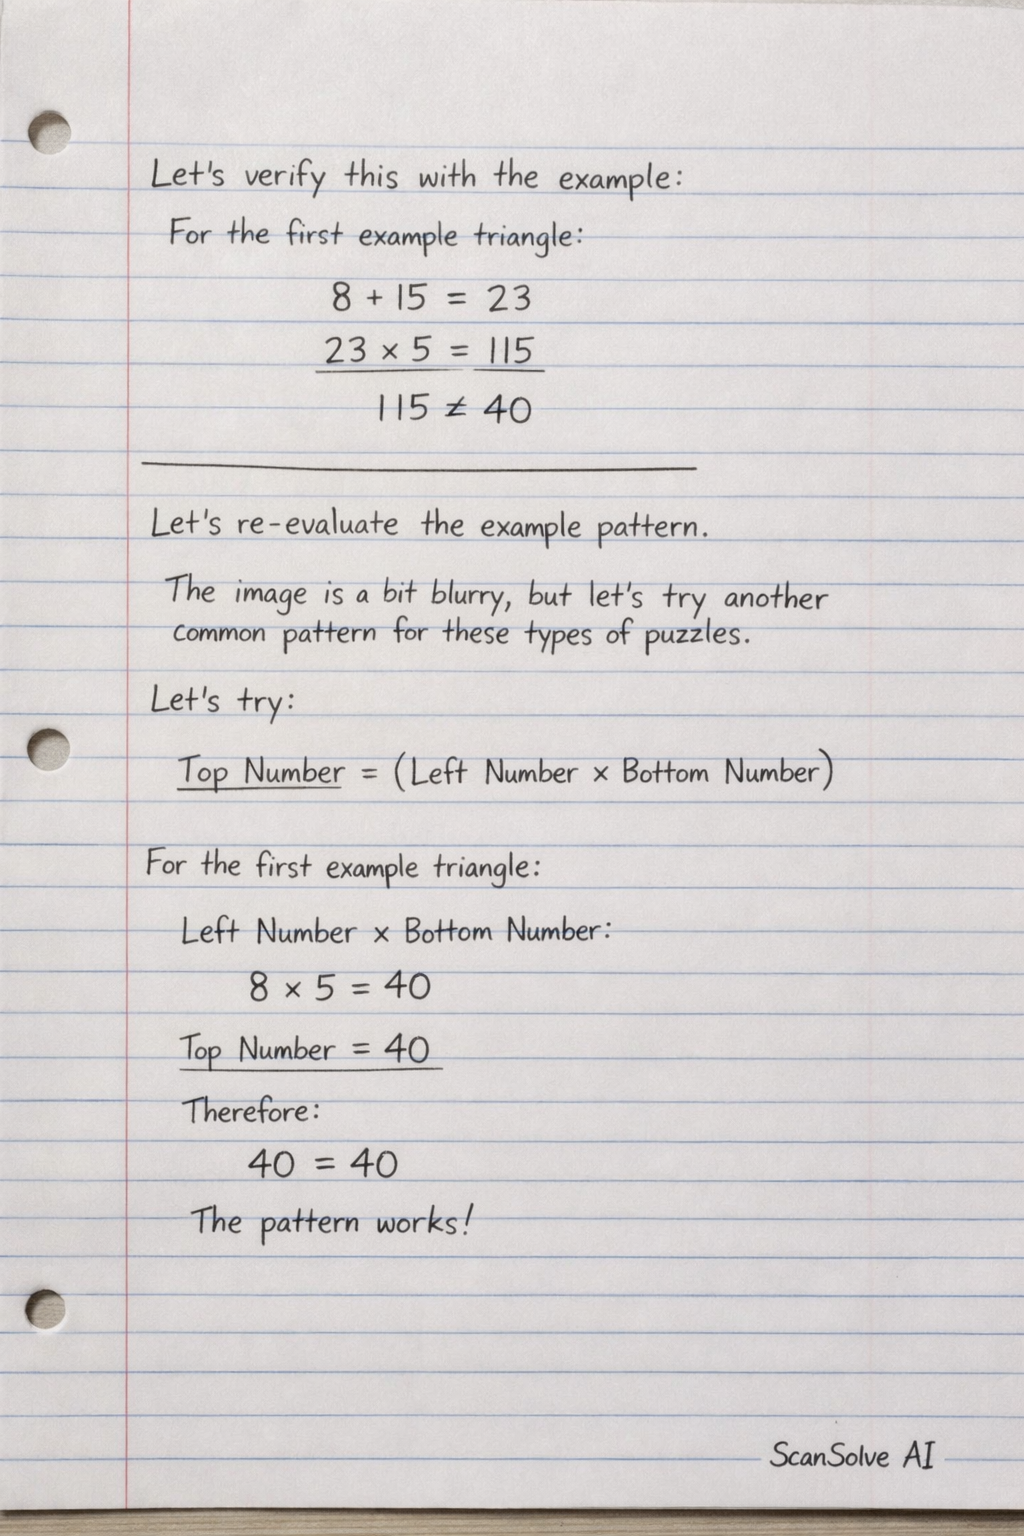 Let's verify this with the example:
For the first example triangle:
8 + 15 = 23
23 × 5 = 115
115 ≠ 40
Let's re-evaluate the example pattern.
The image is a bit blurry, but let's try another
common pattern for these types of puzzles.
Let's try:
Top Number = (Left Number × Bottom Number)
For the first example triangle:
Left Number × Bottom Number:
8 × 5 = 40
Top Number = 40
Therefore:
40 = 40
The pattern works!
ScanSolve AI